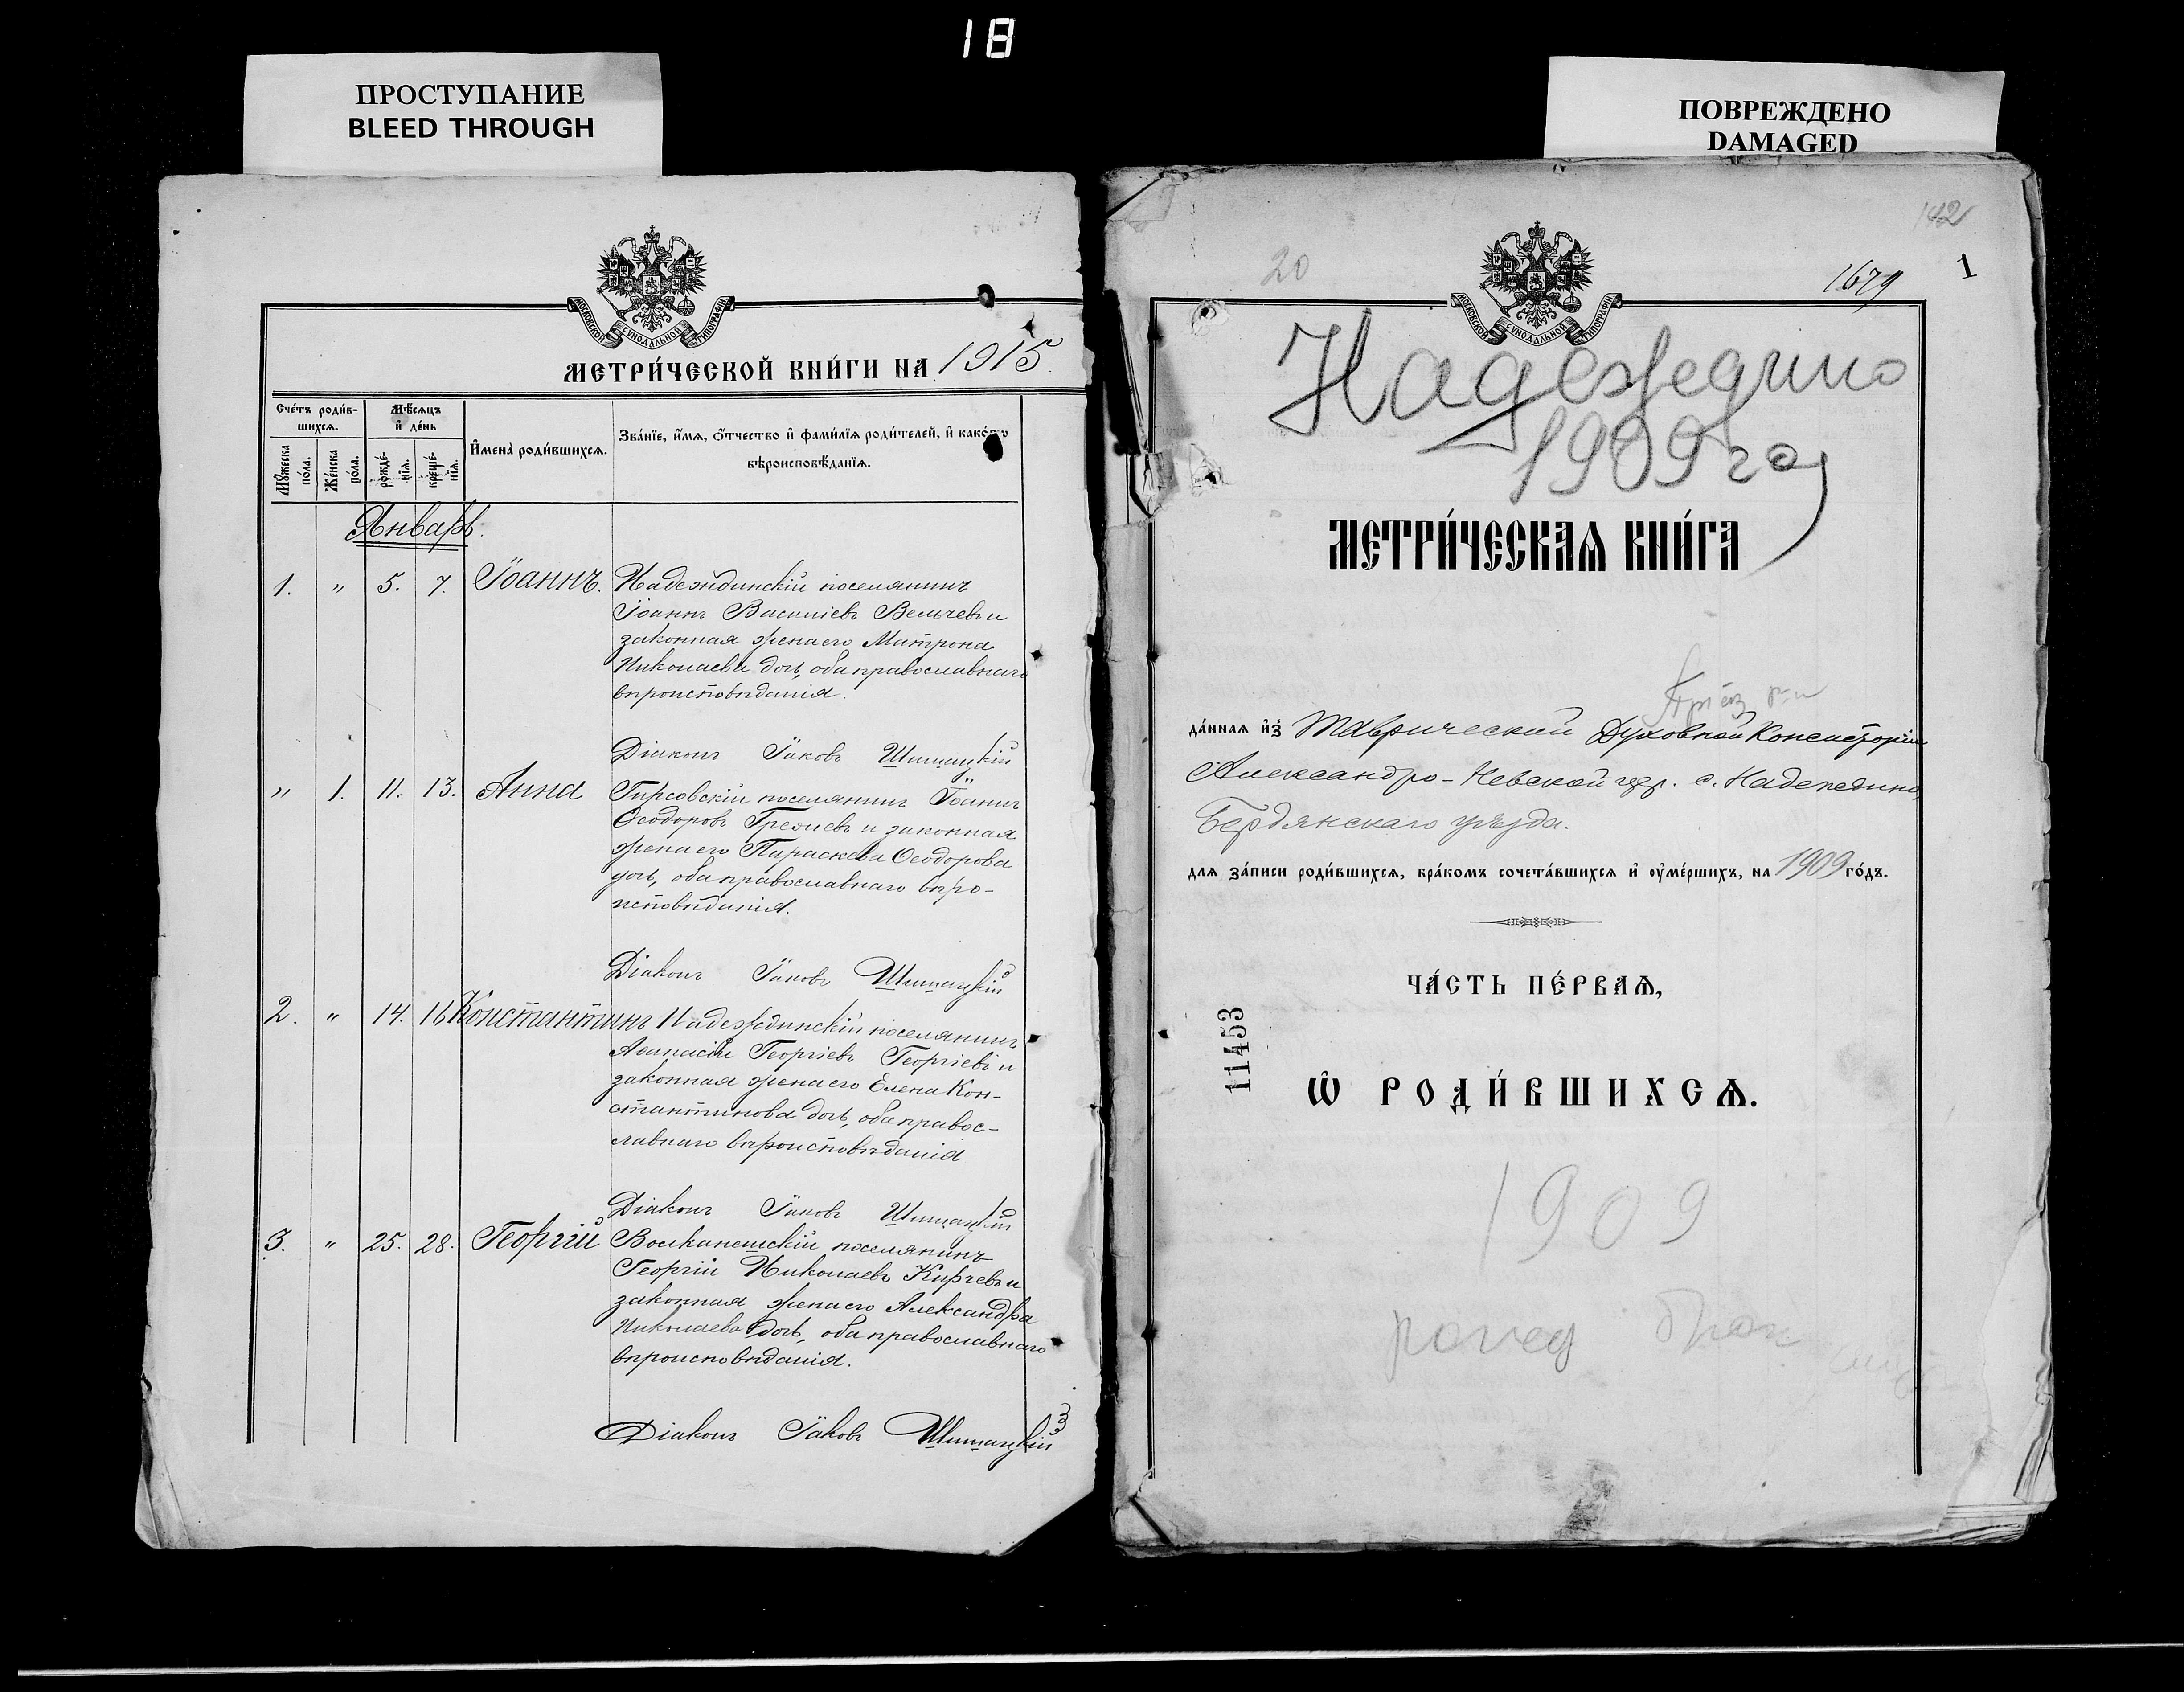 18
ПРОСТУПАНИЕ
BLEED THROUGH
МОСКОВСКОЙ СѴНОДАЛЬНОЙ ТИПОГРАФІИ
МЕТРИ́ЧЕСКОЙ КНИ́ГИ НА 1915.
Сче́тъ роди́в-
шихсѧ.
Мѣ́сѧцъ
и҆ де́нь
И҆мена̀ роди́вшихсѧ.
Зва́нїе, и҆́мѧ, ѻ҆́тчество и҆ фами́лїѧ роди́телей, и҆ како́гѡ
вѣроисповѣ́данїѧ.
Мꙋ́жеска
по́ла.
Же́нска
по́ла.
рожде́-
нїѧ.
креще́-
нїѧ.
Январь.
1. " 5. 7. Іоаннъ. Надеждинскій поселянинъ
Іоаннъ Василіевъ Вельчевъ и
законная жена его Матрона
Николаева дочь, оба православнаго
вѣроисповѣданія.
Діаконъ Іаковъ Шишацкій
" 1. 11. 13. Анна Гирсовскій поселянинъ Іоаннъ
Ѳеодоровъ и законная
жена его Параскева Ѳеодорова
дочь, оба православнаго вѣро-
исповѣданія.
Діаконъ Іаковъ Шишацкій
2. " 14. 16 Константинъ Надеждинскій поселянинъ
Аѳанасій Георгіевъ Георгіевъ и
законная жена его Елена Кон-
стантинова дочь, оба правос-
лавнаго вѣроисповѣданія
Діаконъ Іаковъ Шишацкій
3. " 25. 28. Георгій Волканешскій поселянинъ
Георгій Николаевъ Кирчевъ и
законная жена его Александра
Николаева дочь, оба православнаго
вѣроисповѣданія.
Діаконъ Іаковъ Шишацкій
ПОВРЕЖДЕНО
DAMAGED
142
20
1679
1
МОСКОВСКОЙ СѴНОДАЛЬНОЙ ТИПОГРАФІИ
Надеждино
1909 го
МЕТРИ́ЧЕСКАѦ КНИ́ГА
да́ннаѧ и҆з̾ Таврической Духовной Консисторіи
Александро-Невской цер. с. Надеждино,
Бердянскаго уѣзда.
длѧ за́писи роди́вшихсѧ, бра́комъ сочета́вшихсѧ и҆ ᲂу҆ме́ршихъ, на 1909 го́дъ.
ЧА́СТЬ ПЕ́РВАѦ,
11453
Ѡ҆ РОДИ́ВШИХСѦ.
1909
рожд брак